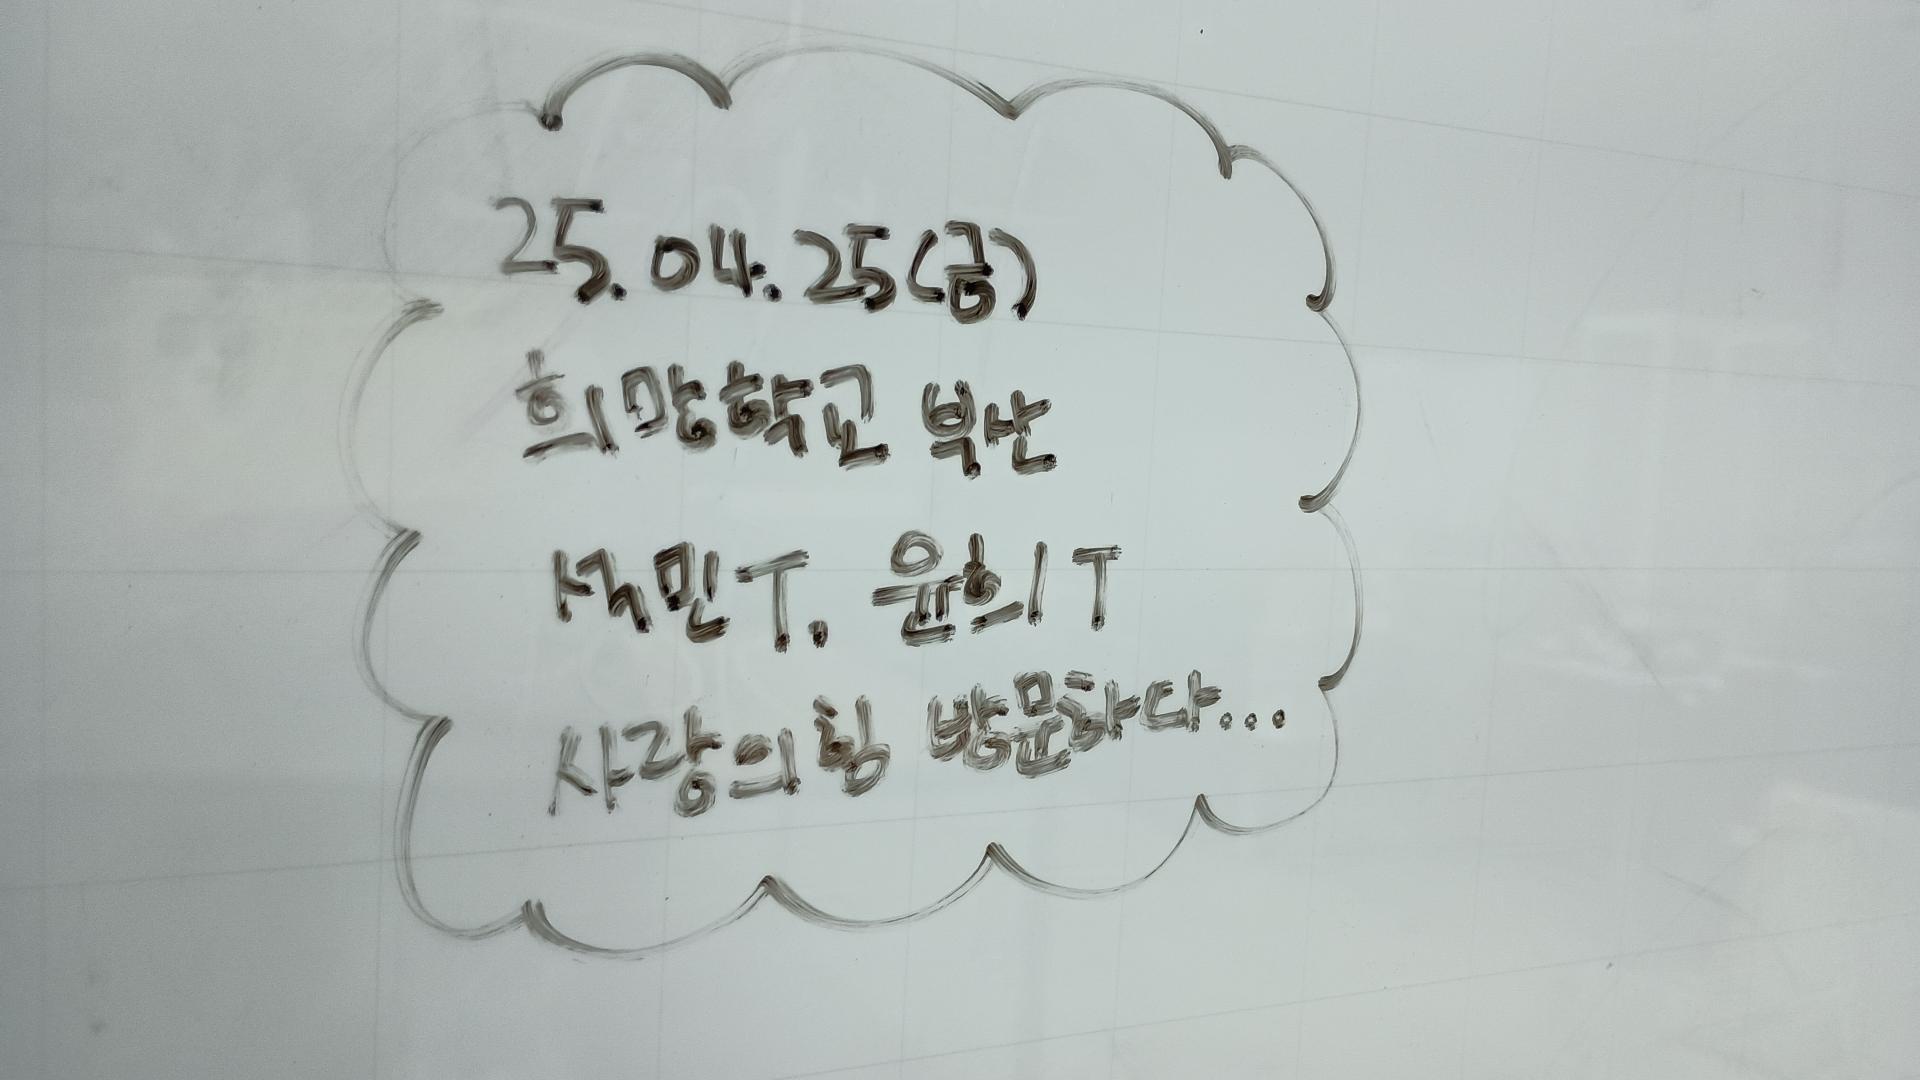 25.04.25(금)
희망학교 부산
석민T. 윤희T
사랑의힘 방문하다...